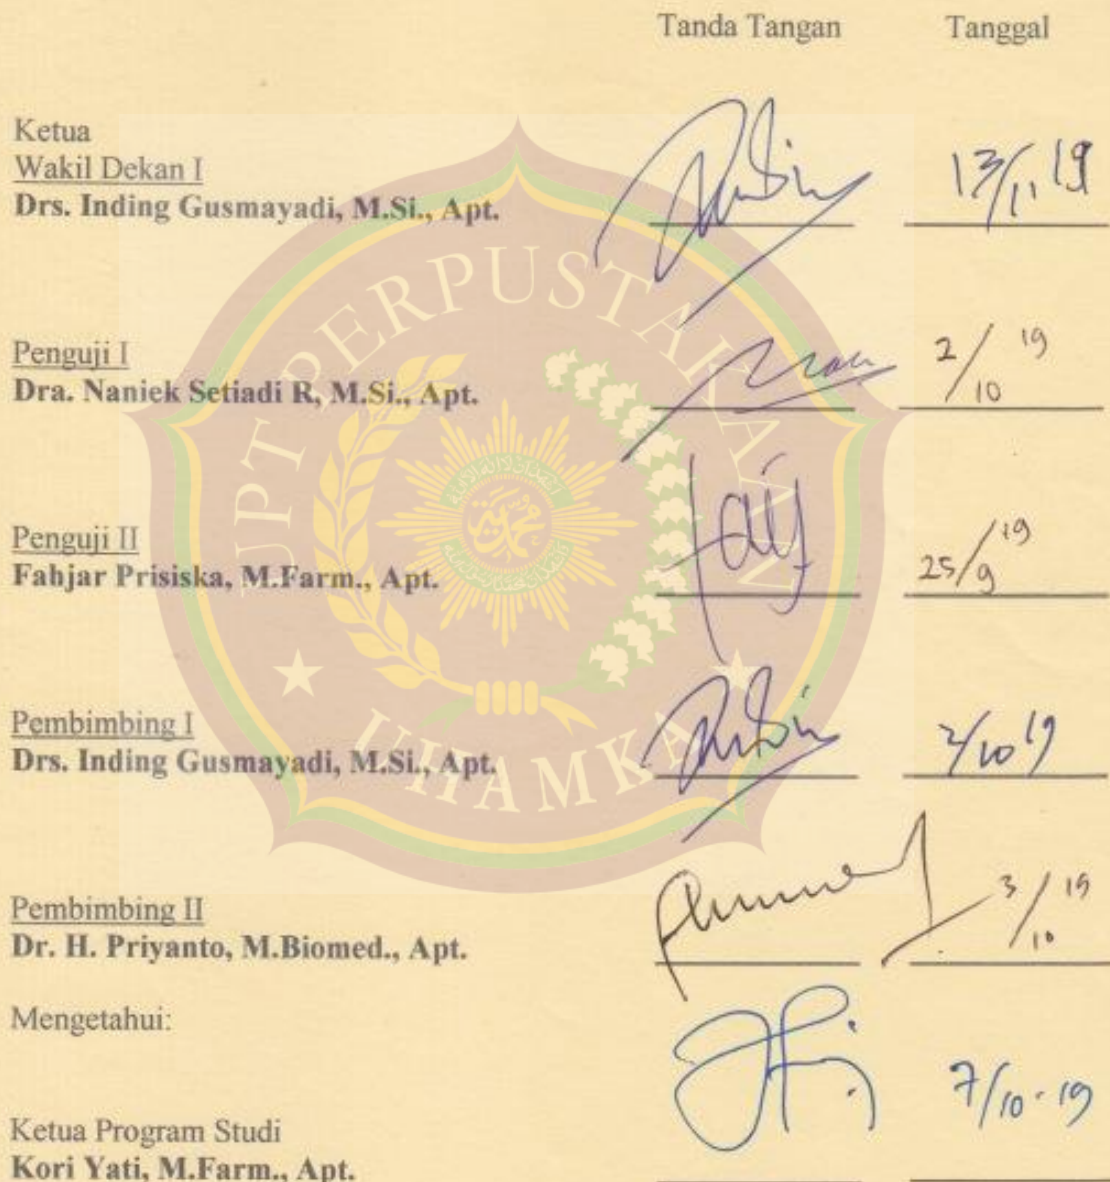 Tanda Tangan Tanggal
Ketua
Wakil Dekan I
Drs. Inding Gusmayadi, M.Si., Apt.
13/11 19
Penguji I
Dra. Naniek Setiadi R, M.Si., Apt.
2/10 19
Penguji II
Fahjar Prisiska, M.Farm., Apt.
25/9 19
Pembimbing I
Drs. Inding Gusmayadi, M.Si., Apt.
2/10 19
Pembimbing II
Dr. H. Priyanto, M.Biomed., Apt.
3/10 19
Mengetahui:
7/10-19
Ketua Program Studi
Kori Yati, M.Farm., Apt.
UPT PERPUSTAKAAN
UHAMKA